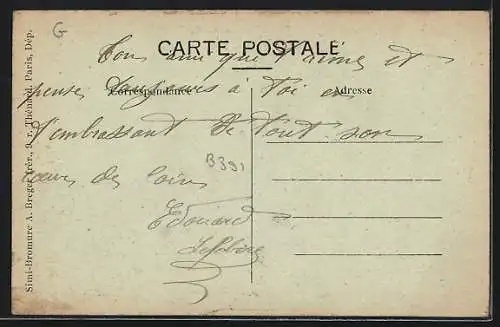 G
CARTE POSTALE
Ton ami que t'aime et
Correspondance
Adresse
pense toujours à Toi en
t'embrassant de tout son
coeur de loin
B391
Edouard
Simi-Bromure A. Breger frèr., 9, r. Thénard, Paris, Dép.